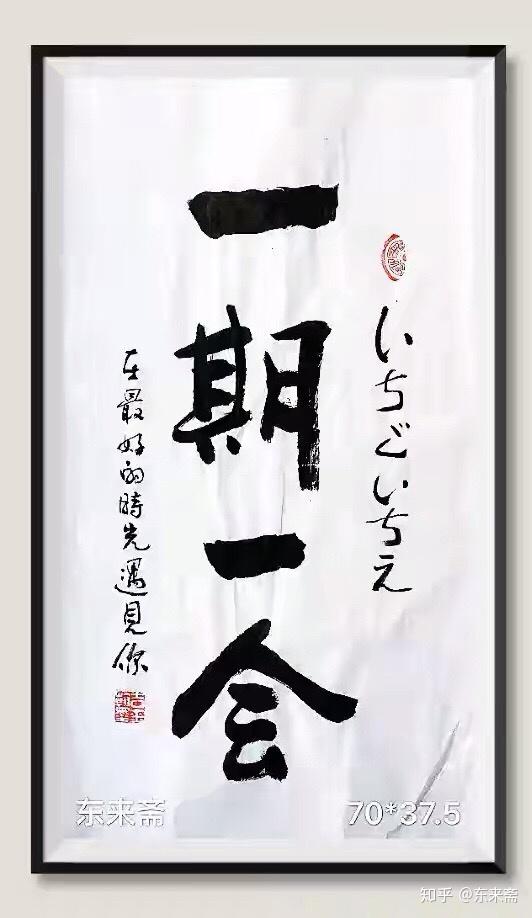 いちどいちえ
一期一会
在最好的時光遇見你
东来斋
70*37.5
知乎 @东来斋